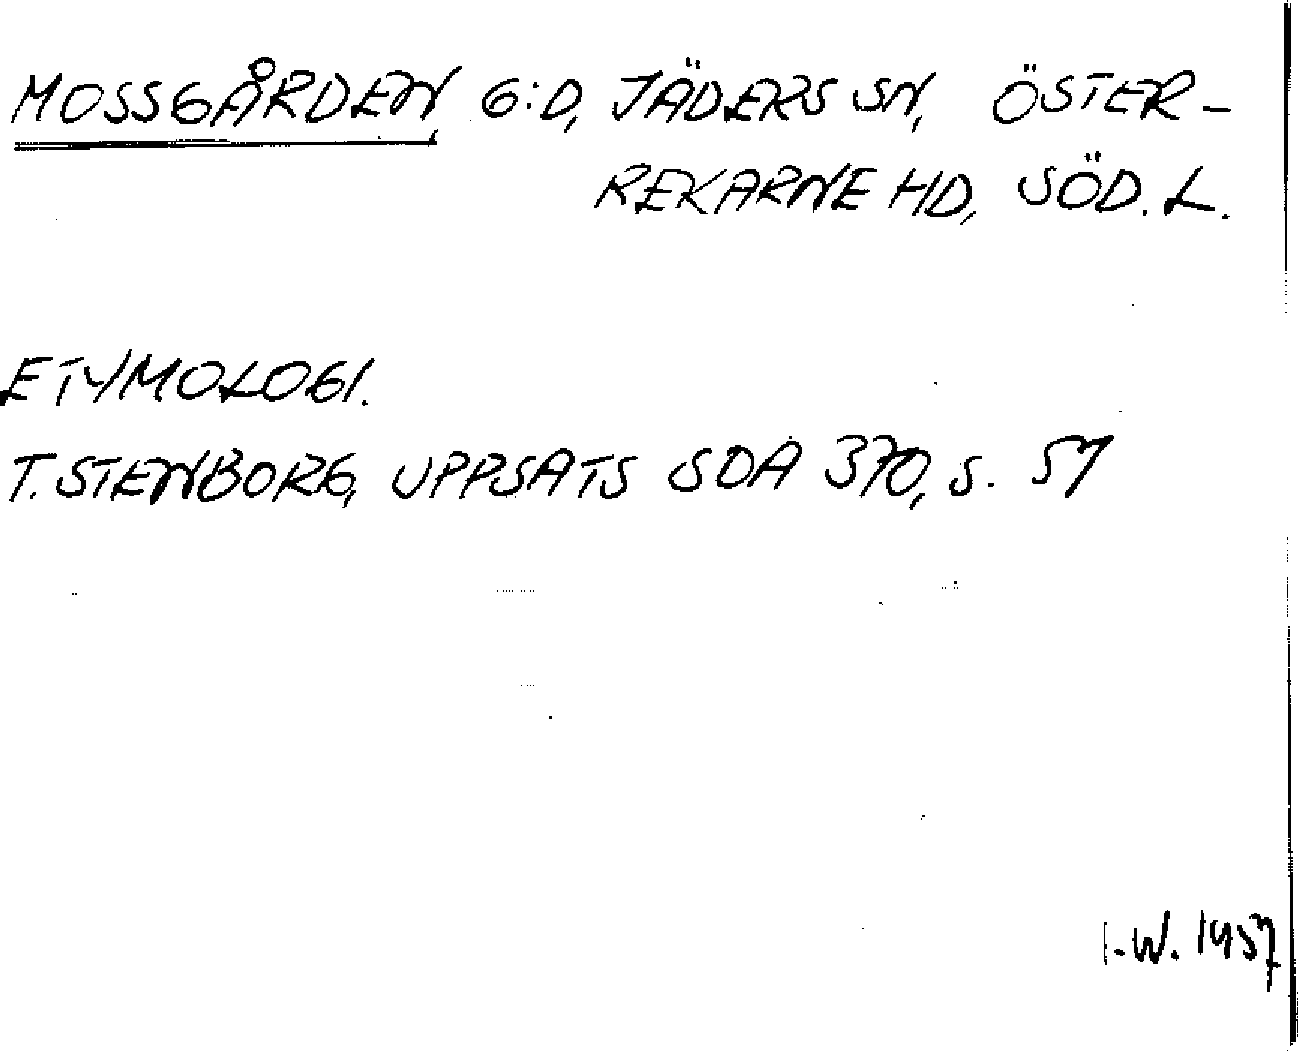 MOSSGÅRDEN G:D, JÄDERS SN, ÖSTER-
REKARNE HD, SÖD. L.
ETYMOLOGI.
T. STENBORG, UPPSATS SOA 370, S. 57
I.W. 1957